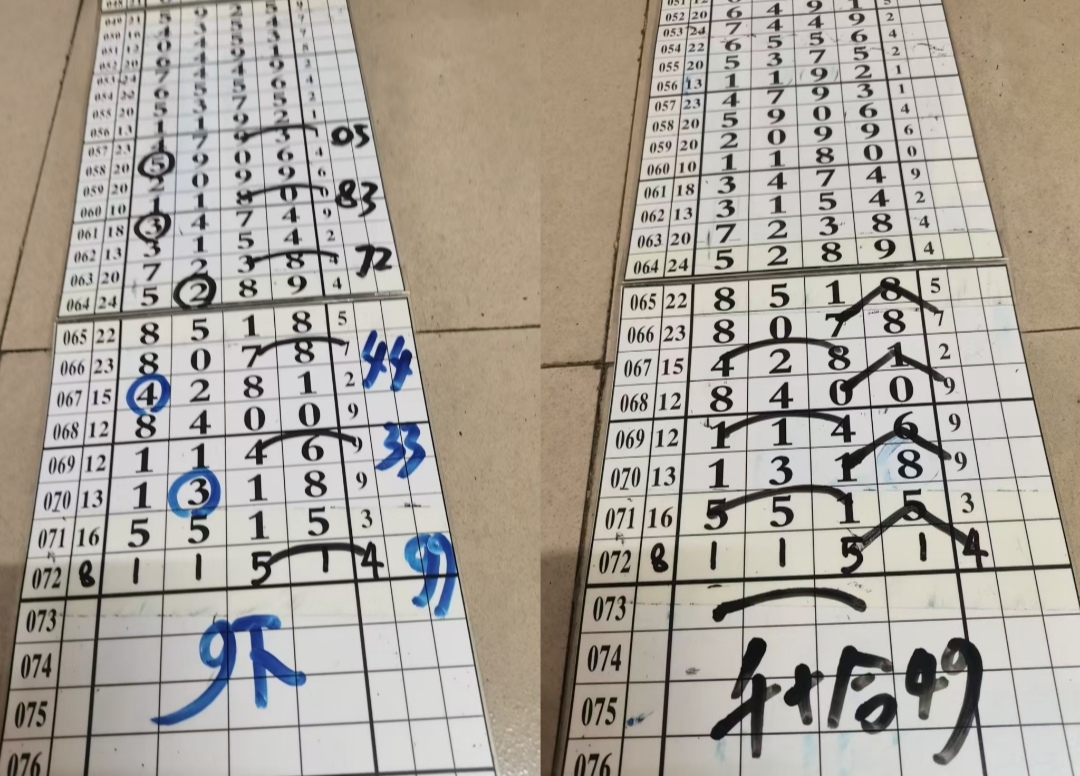 052 20
053 24
054 22
055 20
056 13
057 23 7 9 3 1 05
058 20 5 9 0 6 4
059 20 2 0 9 9 6
060 10 1 1 8 0 0 83
061 18 3 4 7 4 9
062 13 3 1 5 4 2
063 20 7 2 3 8 72
064 24 5 2 8 9 4
065 22 8 5 1 8 5
066 23 8 0 7 8 7 44
067 15 4 2 8 1 2
068 12 8 4 0 0 9
069 12 1 1 4 6 9 33
070 13 1 3 1 8 9
071 16 5 5 1 5 3
072 8 1 1 5 1 4 99
073
074 9下
075
076
052 20 6 4 9 1
053 24 7 4 4 9 2
054 22 6 5 5 6 4
055 20 5 3 7 5 2
056 13 1 1 9 2 1
057 23 4 7 9 3 1
058 20 5 9 0 6 4
059 20 2 0 9 9 6
060 10 1 1 8 0 0
061 18 3 4 7 4 9
062 13 3 1 5 4 2
063 20 7 2 3 8 4
064 24 5 2 8 9 4
065 22 8 5 1 8 5
066 23 8 0 7 8 7
067 15 4 2 8 1 2
068 12 8 4 0 0 9
069 12 1 1 4 6 9
070 13 1 3 1 8 9
071 16 5 5 1 5 3
072 8 1 1 5 1 4
073
074
075
076